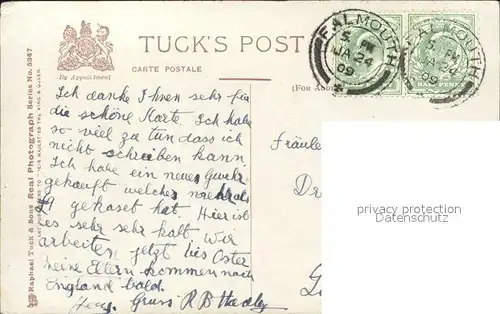 TUCK'S POST
CARTE POSTALE
By Appointment
(For Address
FALMOUTH
5 PM
JA 24
09
FALMOUTH
5 PM
JA 24
09
HALF PENNY
Raphael Tuck & Sons Real Photograph Series No. 5347
Ich danke Ihnen sehr für
die schöne Karte. Ich habe
so viel zu tun dass ich
nicht schreiben kann
Ich habe ein neues Gewehr
gekauft welches
£9 gekostet hat. Hier ist
es sehr sehr kalt. Wir
arbeiten jetzt bis Oster
meine Eltern kommen nach
England bald.
Gruss R B
Fräule
Dr
privacy protection
Datenschutz